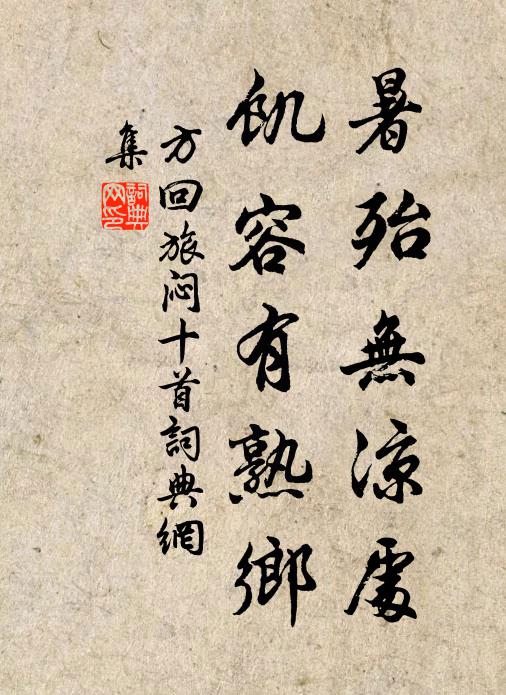 暑殆無涼處
飢容有熟鄉
方回旅悶十首詞典網
集
詞典网印